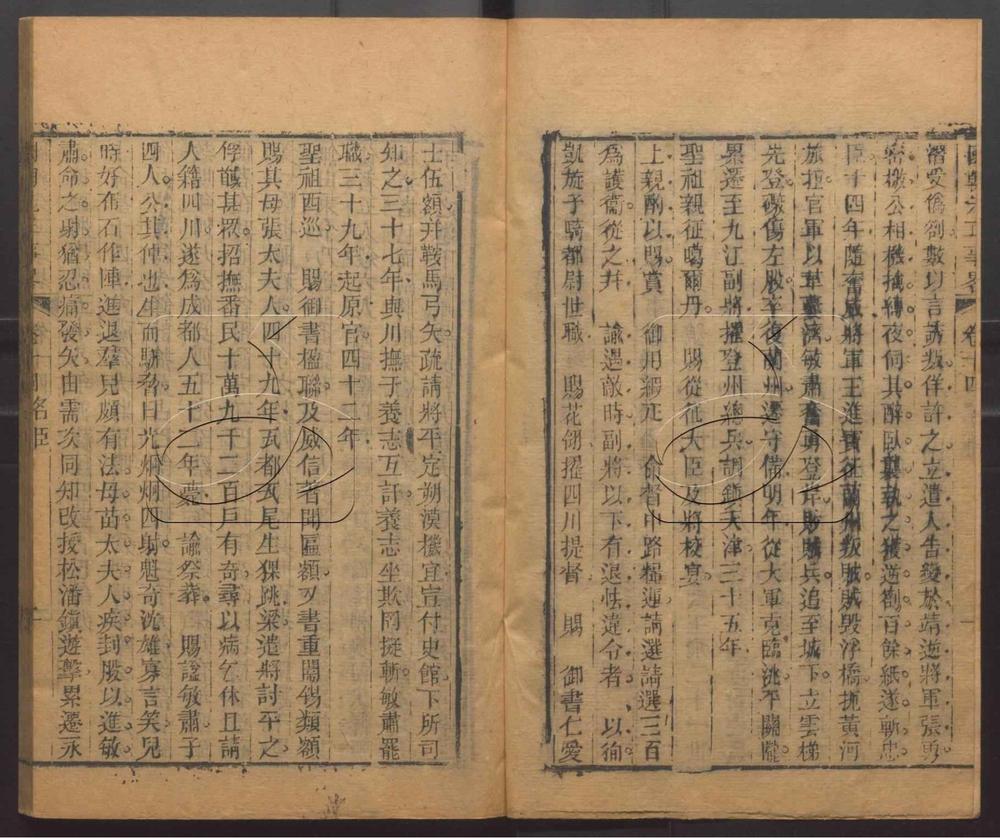 國朝先正事畧 卷十四
潛受僞劄數以言誘叛佯許之立遣人告變於靖逆將軍張勇
密檄公相機擒縛夜伺其醉臥襲執之獲逆劄百餘紙遂斬忠
臣十四年隨奮威將軍王進寶征蘭州叛賊賊毀浮橋扼黃河
旅拒官軍以革囊濟敏肅奮勇登岸敗賊兵追至城下立雲梯
先登礮傷左股卒復蘭州遷守備明年從大軍克臨洮平關隴
累遷至九江副將擢登州總兵調鎮天津三十五年
聖祖親征噶爾丹 賜從征大臣及將校宴
上親酌以賜賞 御用綱疋 命督中路糧運請選請選三百
為護衞從之幷 諭遇敵時副將以下有退怯違令者 以狥
凱旋予騎都尉世職 賜花翎擢四川提督 賜 御書仁愛
士伍額幷鞍馬弓矢疏請將平定朔漠機宜宣付史館下所司
知之三十七年與川撫于養志互訐養志坐欺罔擬斬敏肅罷
職三十九年起原官四十二年
聖祖西巡 賜御書楹聯及威信著聞匾額又書重闈錫類額
賜其母張太夫人四十九年五都五尾生猓跳梁遣將討平之
俘馘甚衆招撫番民十萬九千二百戶有奇尋以病乞休且請
人籍四川遂爲成都人五十二年薨 諭祭葬 賜諡敏肅子
四人公其仲也生而駢脅目光炯炯四射魁奇沈雄寡言笑兒
時好布石作陣進退羣兒頗有法母苗太夫人疾刲股以進敏
肅命之射猶忍痛發矢由需次同知改授松潘鎮遊擊累遷永
卷十四 名臣